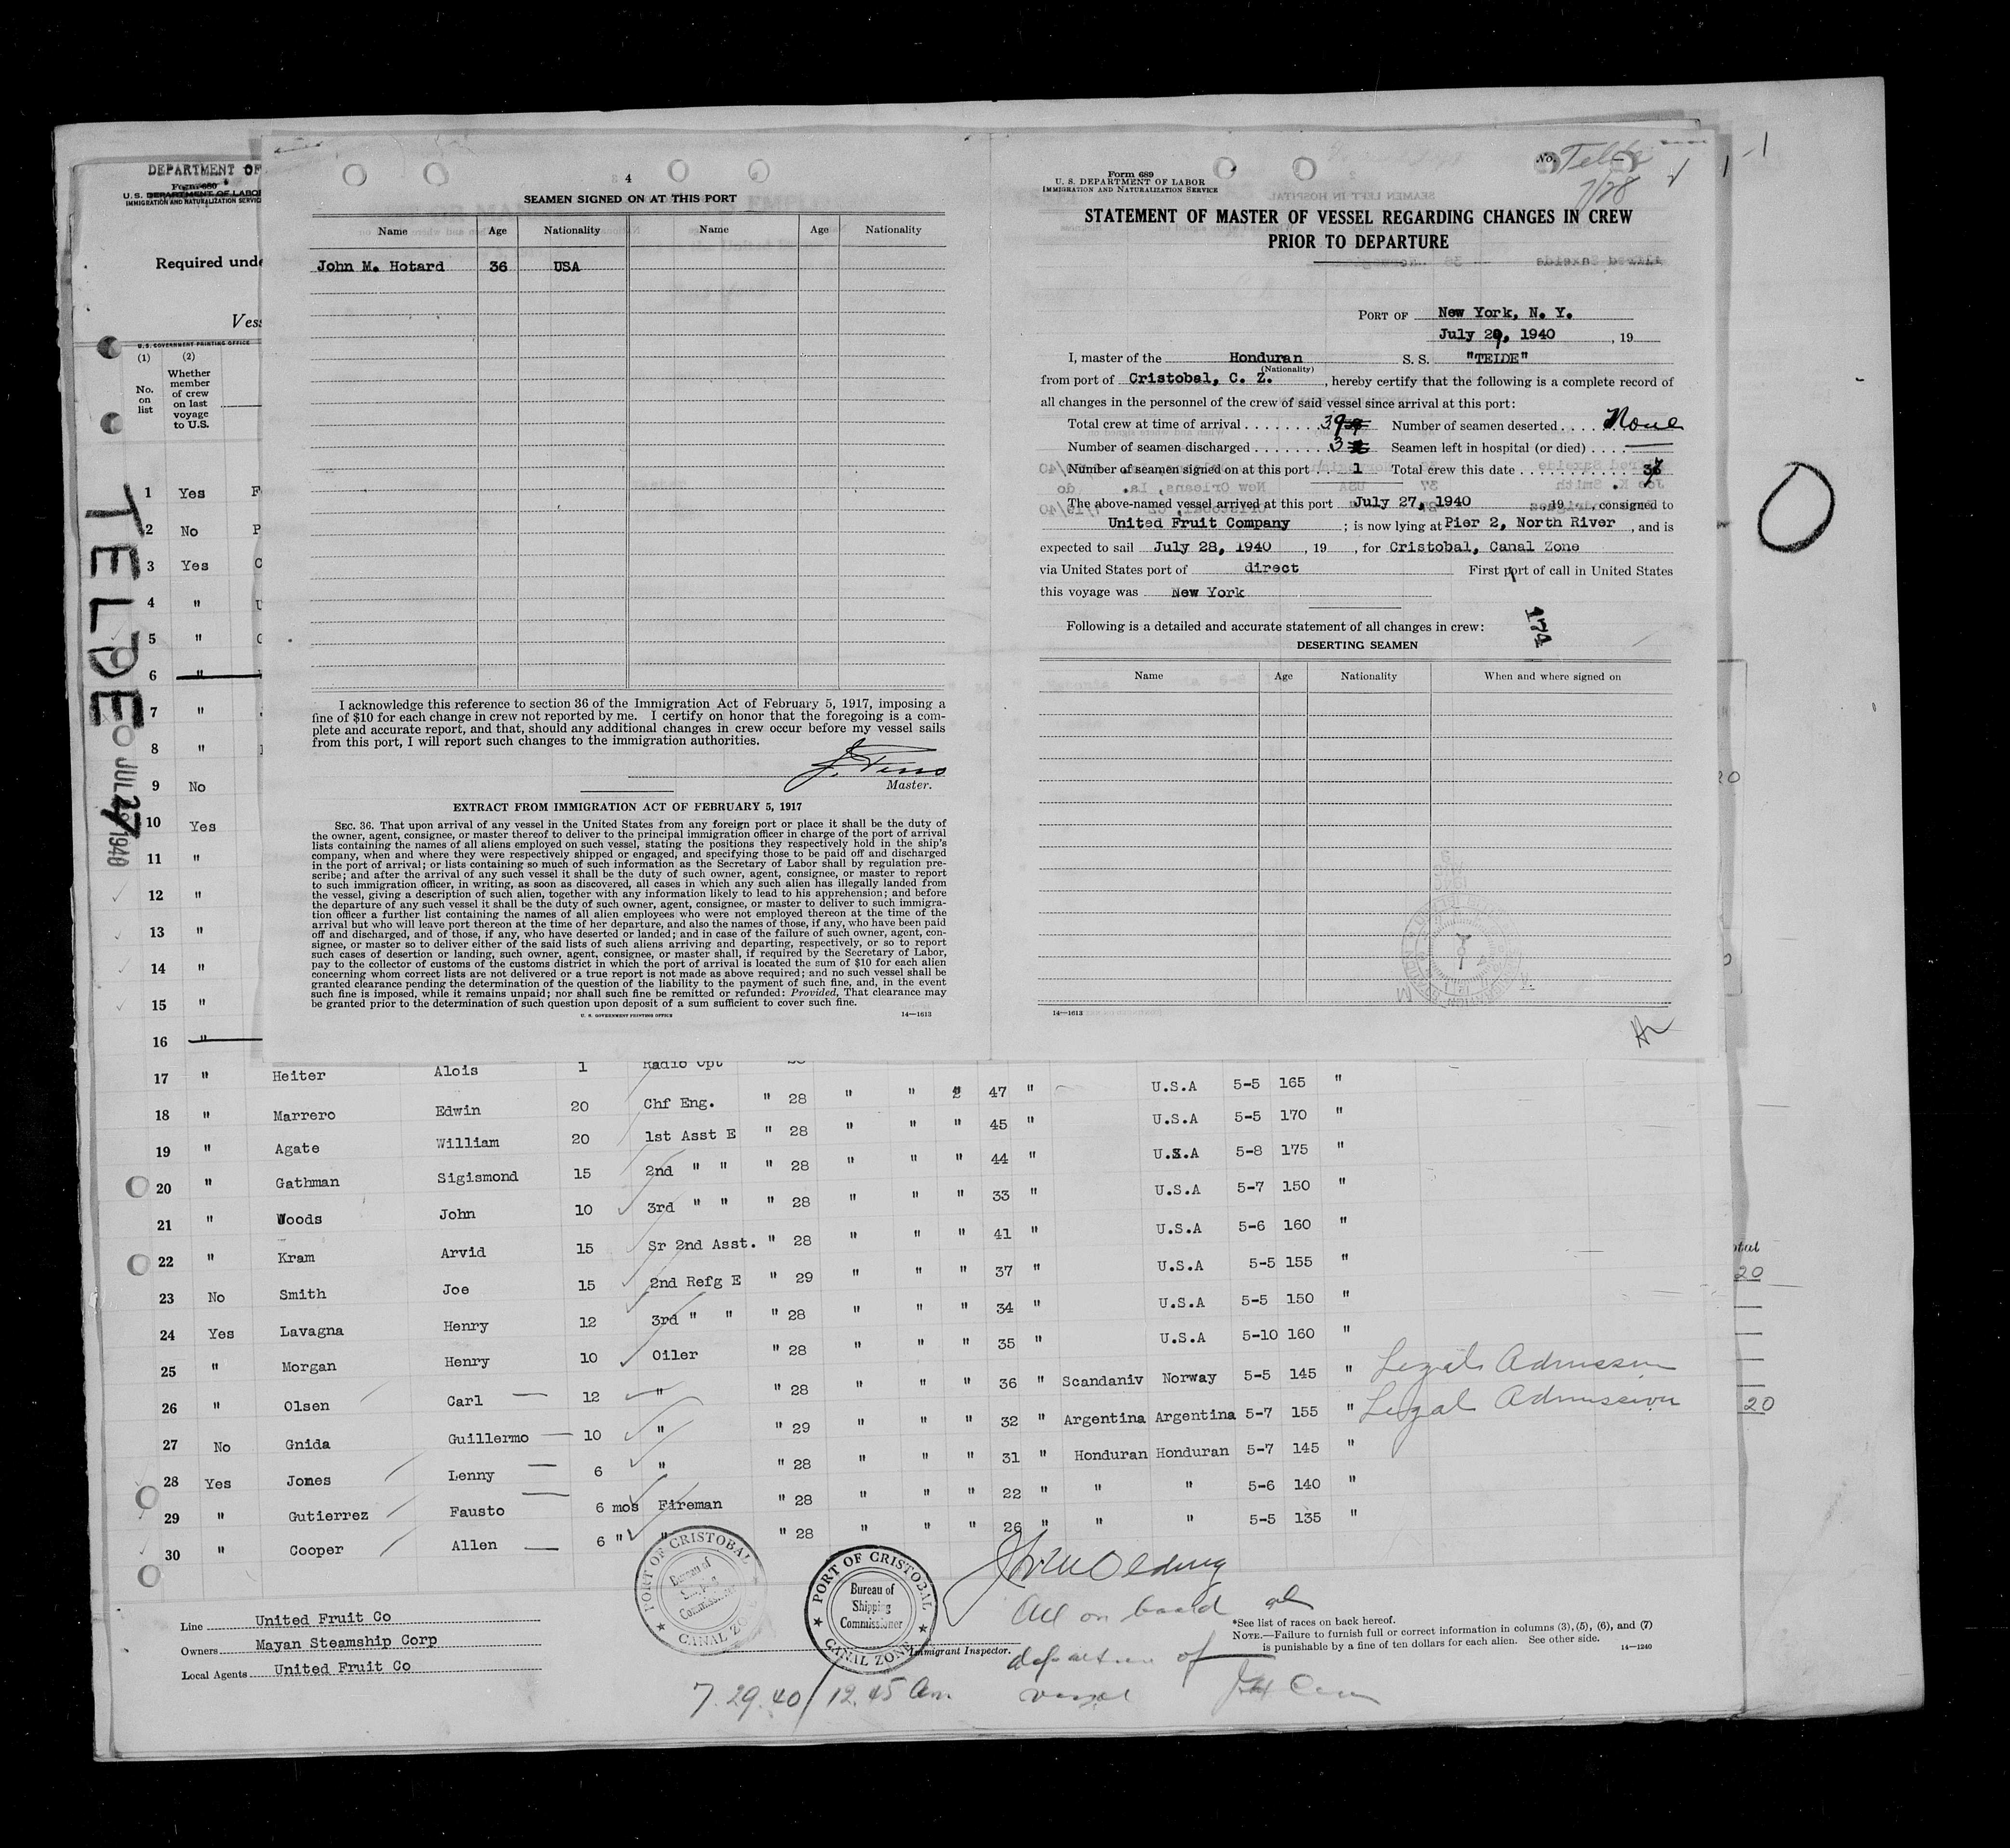 4
SEAMEN SIGNED ON AT THIS PORT
Name Age Nationality Name Age Nationality
John M. Hotard 36 USA
I acknowledge this reference to section 36 of the Immigration Act of February 5, 1917, imposing a
fine of $10 for each change in crew not reported by me. I certify on honor that the foregoing is a com-
plete and accurate report, and that, should any additional changes in crew occur before my vessel sails
from this port, I will report such changes to the immigration authorities.
Master.
EXTRACT FROM IMMIGRATION ACT OF FEBRUARY 5, 1917
SEC. 36. That upon arrival of any vessel in the United States from any foreign port or place it shall be the duty of
the owner, agent, consignee, or master thereof to deliver to the principal immigration officer in charge of the port of arrival
lists containing the names of all aliens employed on such vessel, stating the positions they respectively hold in the ship's
company, when and where they were respectively shipped or engaged, and specifying those to be paid off and discharged
in the port of arrival; or lists containing so much of such information as the Secretary of Labor shall by regulation pre-
scribe; and after the arrival of any such vessel it shall be the duty of such owner, agent, consignee, or master to report
to such immigration officer, in writing, as soon as discovered, all cases in which any such alien has illegally landed from
the vessel, giving a description of such alien, together with any information likely to lead to his apprehension; and before
the departure of any such vessel it shall be the duty of such owner, agent, consignee, or master to deliver to such immigra-
tion officer a further list containing the names of all alien employees who were not employed thereon at the time of the
arrival but who will leave port thereon at the time of her departure, and also the names of those, if any, who have been paid
off and discharged, and of those, if any, who have deserted or landed; and in case of the failure of such owner, agent, con-
signee, or master so to deliver either of the said lists of such aliens arriving and departing, respectively, or so to report
such cases of desertion or landing, such owner, agent, consignee, or master shall, if required by the Secretary of Labor,
pay to the collector of customs of the customs district in which the port of arrival is located the sum of $10 for each alien
concerning whom correct lists are not delivered or a true report is not made as above required; and no such vessel shall be
granted clearance pending the determination of the question of the liability to the payment of such fine, and, in the event
such fine is imposed, while it remains unpaid; nor shall such fine be remitted or refunded: Provided, That clearance may
be granted prior to the determination of such question upon deposit of a sum sufficient to cover such fine.
U. S. GOVERNMENT PRINTING OFFICE 14—1613
Form 689
U. S. DEPARTMENT OF LABOR
IMMIGRATION AND NATURALIZATION SERVICE
No. Telde
7/28
STATEMENT OF MASTER OF VESSEL REGARDING CHANGES IN CREW
PRIOR TO DEPARTURE
PORT OF New York, N. Y.
July 29, 1940, 19
I, master of the Honduran S. S. "TELDE"
(Nationality)
from port of Cristobal, C. Z., hereby certify that the following is a complete record of
all changes in the personnel of the crew of said vessel since arrival at this port:
Total crew at time of arrival 39 Number of seamen deserted None
Number of seamen discharged 3 Seamen left in hospital (or died)
Number of seamen signed on at this port 1 Total crew this date 37
The above-named vessel arrived at this port July 27, 1940 19 , consigned to
United Fruit Company ; is now lying at Pier 2, North River , and is
expected to sail July 28, 1940 , 19 , for Cristobal, Canal Zone
via United States port of direct First port of call in United States
this voyage was New York
174
Following is a detailed and accurate statement of all changes in crew:
DESERTING SEAMEN
Name Age Nationality When and where signed on
14—1613
DEPARTMENT OF
Form 680
U. S. DEPARTMENT OF LABOR
IMMIGRATION AND NATURALIZATION SERVIC
Required unde
Vess
U.S. GOVERNMENT PRINTING OFFICE
(1) (2)
No. on list
Whether member of crew on last voyage to U.S.
TELDE
JUL 27 1940
1 Yes F
2 No P
3 Yes C
4 " U
5 " C
6 "
7 "
8 "
9 No
10 Yes
11 "
12 "
13 "
14 "
15 "
16 "
17 " Heiter Alois 1 Radio Opt
18 " Marrero Edwin 20 Chf Eng. " 28 " " " 47 " U.S.A 5-5 165 "
19 " Agate William 20 1st Asst E " 28 " " " 45 " U.S.A 5-5 170 "
20 " Gathman Sigismond 15 2nd " " " 28 " " " 44 " U.S.A 5-8 175 "
21 " Woods John 10 3rd " " " 28 " " " 33 " U.S.A 5-7 150 "
22 " Kram Arvid 15 Sr 2nd Asst. " 28 " " " 41 " U.S.A 5-6 160 "
23 No Smith Joe 15 2nd Refg E " 29 " " " 37 " U.S.A 5-5 155 "
24 Yes Lavagna Henry 12 3rd " " " 28 " " " 34 " U.S.A 5-5 150 "
25 " Morgan Henry 10 Oiler " 28 " " " 35 " U.S.A 5-10 160 "
26 " Olsen Carl 12 " " 28 " " " 36 " Scandaniv Norway 5-5 145 " Legal Admission
27 No Gnida Guillermo 10 " " 29 " " " 32 " Argentina Argentina 5-7 155 " Legal Admission
28 Yes Jones Lenny 6 " " 28 " " " 31 " Honduran Honduran 5-7 145 "
29 " Gutierrez Fausto 6 mos Fireman " 28 " " " 22 " " " 5-6 140 "
30 " Cooper Allen 6 " " " 28 " " " 26 " " " 5-5 135 "
20
20
Line United Fruit Co
Owners Mayan Steamship Corp
Local Agents United Fruit Co
PORT OF CRISTOBAL
Bureau of
Shipping
Commissioner
CANAL ZONE
PORT OF CRISTOBAL
Bureau of
Shipping
Commissioner
CANAL ZONE
Immigrant Inspector.
All on board at
departure of
vessel
7.29.40 / 12.45 am
*See list of races on back hereof.
NOTE.—Failure to furnish full or correct information in columns (3), (5), (6), and (7)
is punishable by a fine of ten dollars for each alien. See other side.
14—1240